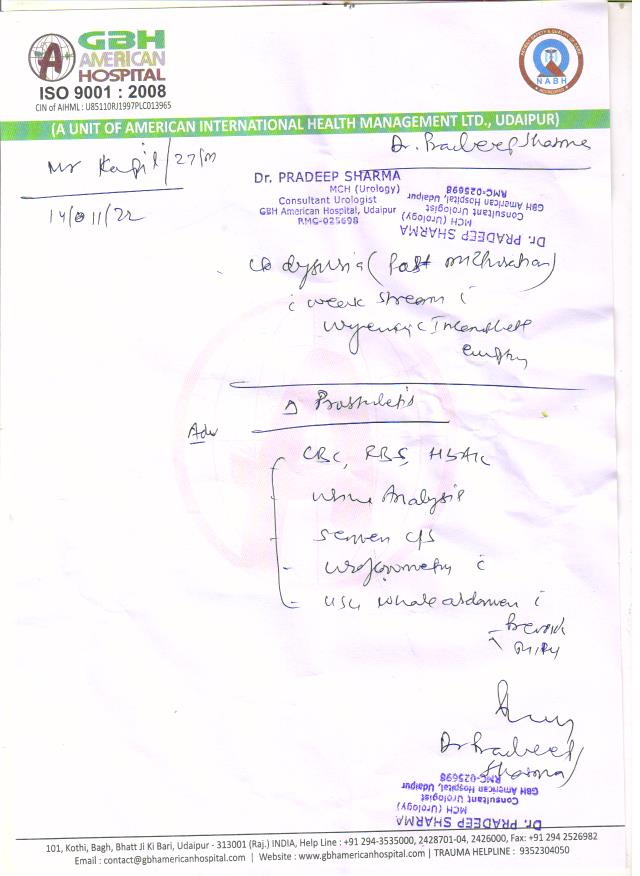 GBH
AMERICAN
HOSPITAL
ISO 9001 : 2008
CIN of AIHML : U85110RJ1997PLC013965
NABH
(A UNIT OF AMERICAN INTERNATIONAL HEALTH MANAGEMENT LTD., UDAIPUR)
Dr. Pradeep Sharma
Mr Kapil/27/m
Dr. PRADEEP SHARMA
MCH (Urology)
Consultant Urologist
GBH American Hospital, Udaipur
RMC-025698
Dr. PRADEEP SHARMA
MCH (Urology)
Consultant Urologist
GBH American Hospital, Udaipur
RMC-025698
14/11/22
c/o dysuria (Post micturation)
c weak stream c
urgency c
△ Prostatitis
Adv
CBC, RBS, HbA1c
urine Analysis
semen c/s
uroflowmetry c
USG whole abdomen c
Dr Pradeep
Sharma
Dr. PRADEEP SHARMA
MCH (Urology)
Consultant Urologist
GBH American Hospital, Udaipur
RMC-025698
101, Kothi, Bagh, Bhatt Ji Ki Bari, Udaipur - 313001 (Raj.) INDIA, Help Line : +91 294-3535000, 2428701-04, 2426000, Fax: +91 294 2526982
Email : contact@gbhamericanhospital.com | Website : www.gbhamericanhospital.com | TRAUMA HELPLINE : 9352304050